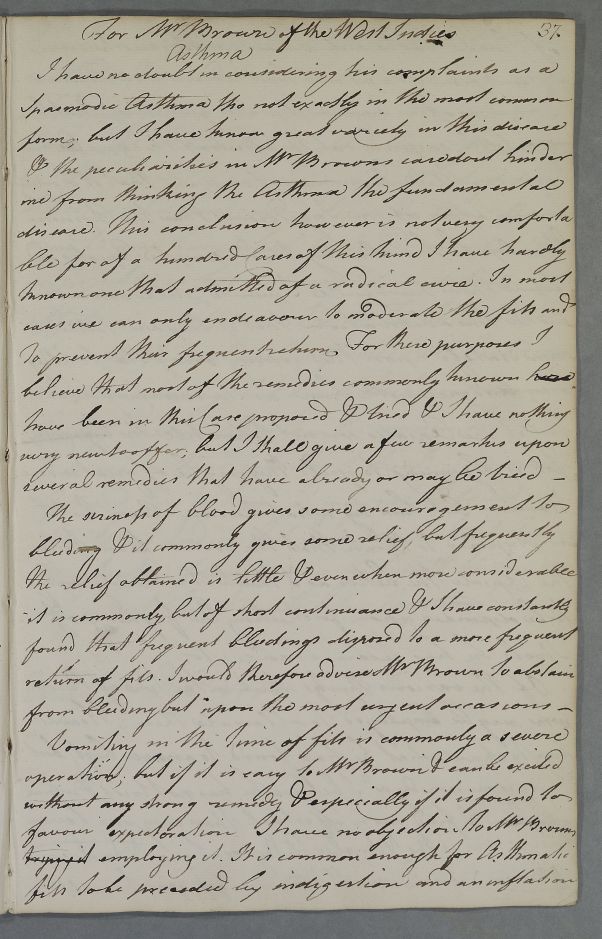 For Mr Brown of the West Indies 37.
Asthma
I have no doubt in considering his complaints as a
Spasmodic Asthma tho not exactly in the most common
form; but I have known great variety in this disease
& the peculiarities in Mr Browns case dont hinder
me from thinking the Asthma the fundamental
disease. This conclusion however is not very comforta
ble for of a hundred Cases of this kind I have hardly
known one that admitted of a radical cure. In most
cases we can only endeavour to moderate the fits and
to prevent their frequent return. For these purposes I
believe that most of the remedies commonly known
have been in this Case proposed & tried & I have nothing
very new to offer; but I shall give a few remarks upon
several remedies that have already or may be tried –
The siziness of blood gives some encouragement to
bleeding & it commonly gives some relief, but frequently
the relief obtained is little & even when more considerable
it is commonly but of short continuance & I have constantly
found that frequent bleedings disposed to a more frequent
return of fits. I would therefore advise Mr Brown to abstain
from bleeding but upon the most urgent occasions –
Vomiting in the time of fits is commonly a severe
operation; but if it is easy to Mr Brown & can be excited
without any strong remedy & especially if it is found to
favour expectoration I have no objection to Mr Browns
trying it employing it. It is common enough for Asthmatic
fits to be preceeded by indigestion and an inflation